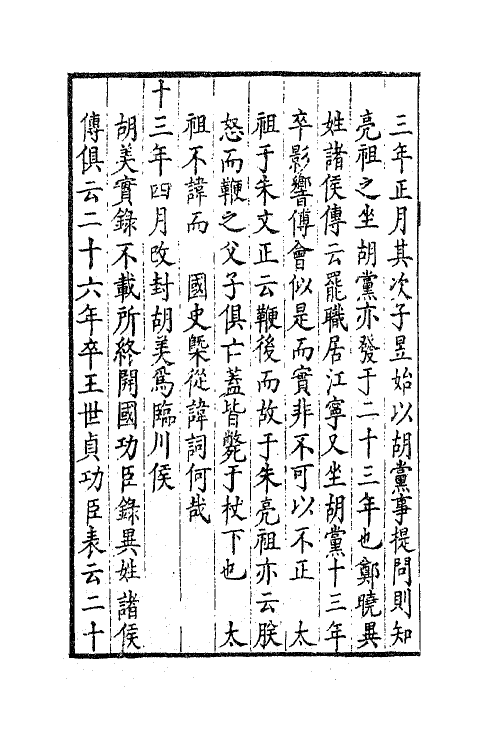 三年正月其次子昱始以胡黨事提問則知
亮祖之坐胡黨亦發于二十三年也鄭曉異
姓諸侯傳云罷職居江寧又坐胡黨十三年
卒影響傅會似是而實非不可以不正　太
祖于朱文正云鞭後而故于朱亮祖亦云朕
怒而鞭之父子俱亡蓋皆斃于杖下也　太
祖不諱而　國史槩從諱詞何哉
十三年四月改封胡美爲臨川侯
胡美實錄不載所終開國功臣錄異姓諸侯
傳俱云二十六年卒王世貞功臣表云二十